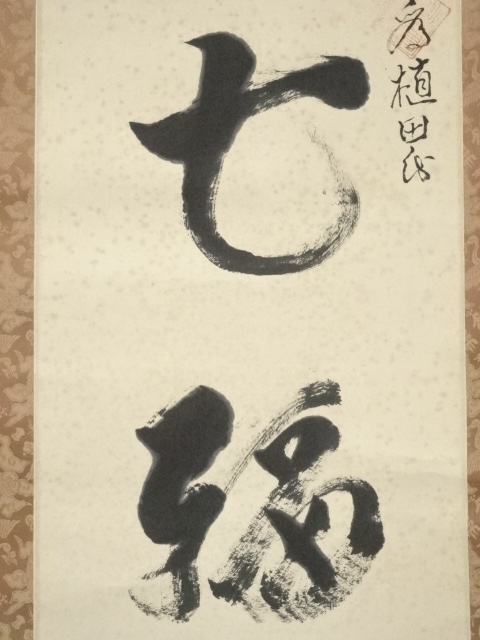 為植田氏
七